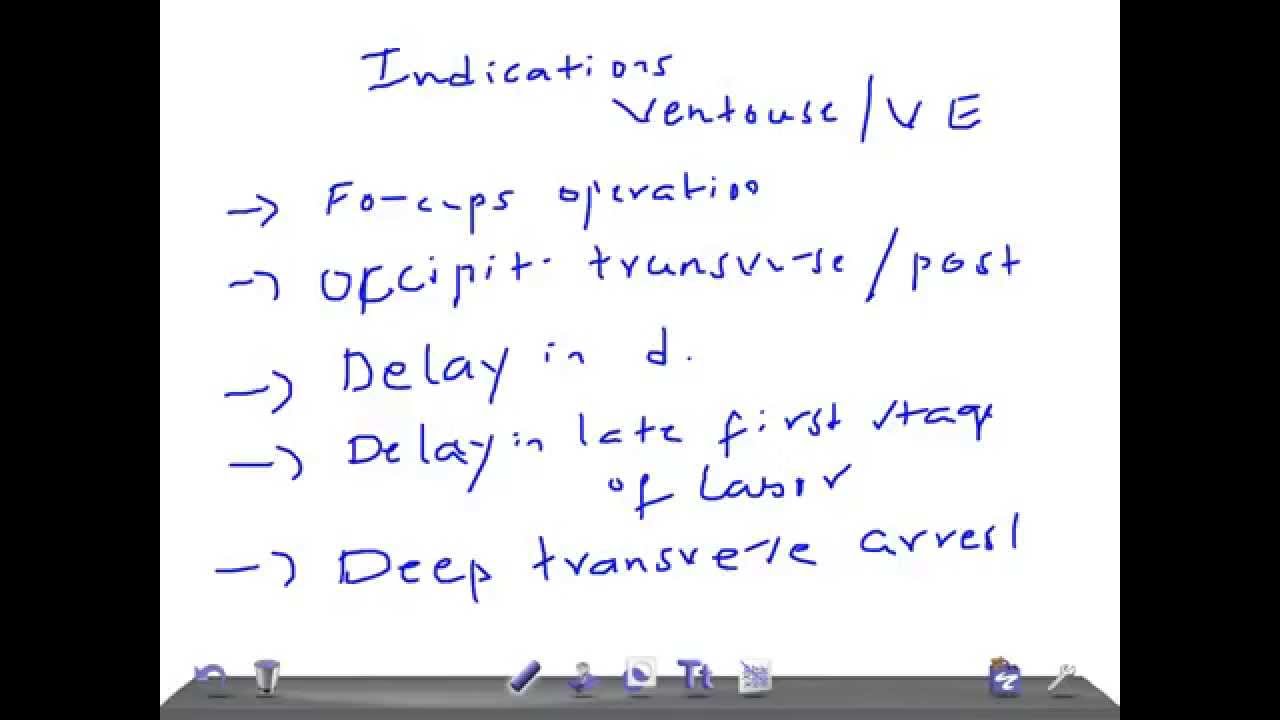 Indications
Ventouse/VE
→ Forceps operation
→ Occipit. transverse/post
→ Delay in d.
→ Delay in late first stage
of Labor
→ Deep transverse arrest
Tt